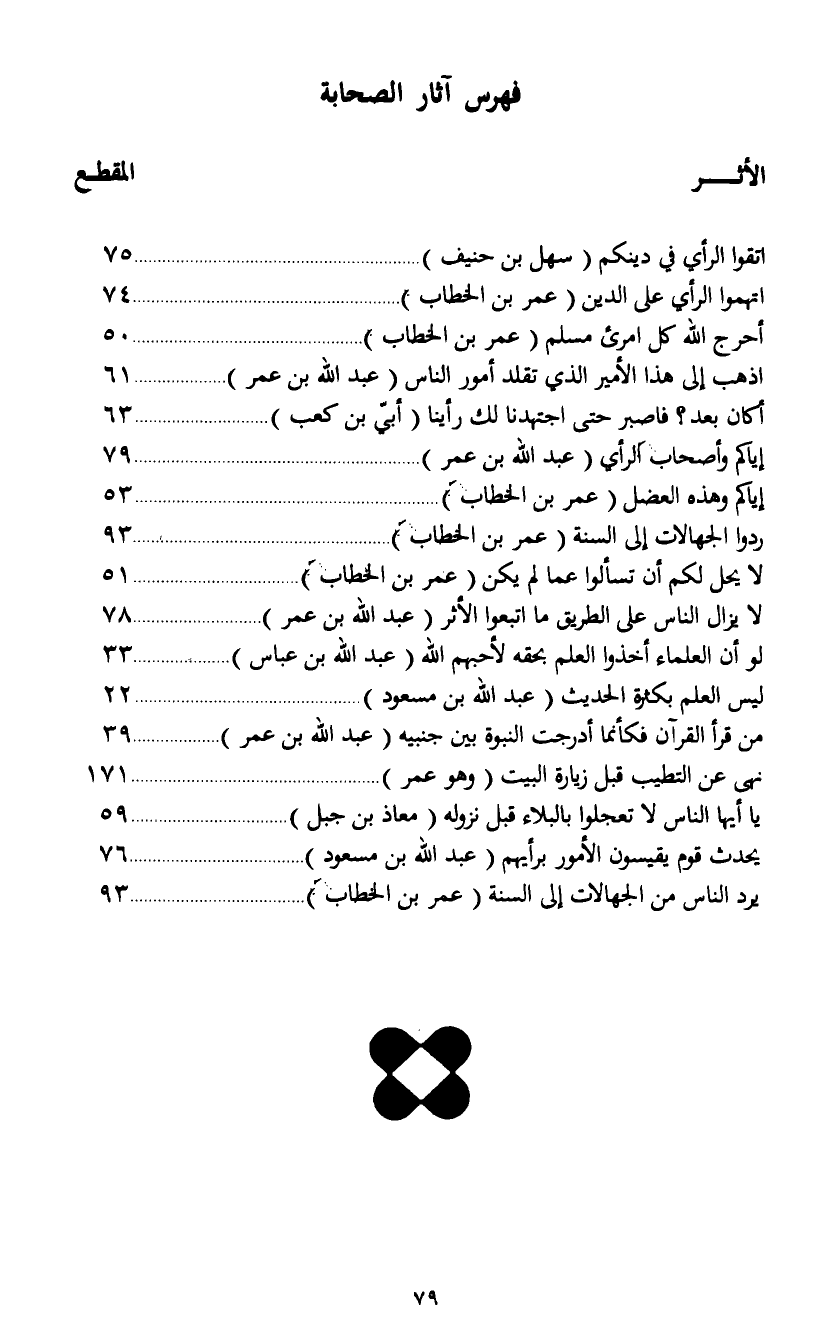 فهرس آثار الصحابة
الأثــــر المقطـع
اتقوا الرأي في دينكم ( سهل بن حنيف )..........٧٥
اتهموا الرأي على الدين ( عمر بن الخطاب )..........٧٤
أحرج الله كل امرئ مسلم ( عمر بن الخطاب )..........٥٠
اذهب إلى هذا الأمير الذي تقلد أمور الناس ( عبد الله بن عمر )..........٦١
أكان بعد؟ فاصبر حتى اجتهدنا لك رأينا ( أبيّ بن كعب )..........٦٣
إياكم وأصحاب الرأي ( عبد الله بن عمر )..........٧٩
إياكم وهذه العضل ( عمر بن الخطاب )..........٥٣
ردوا الجهالات إلى السنة ( عمر بن الخطاب )..........٩٣
لا يحل لكم أن تسألوا عما لم يكن ( عمر بن الخطاب )..........٥١
لا يزال الناس على الطريق ما اتبعوا الأثر ( عبد الله بن عمر )..........٧٨
لو أن العلماء أخذوا العلم بحقه لأحبهم الله ( عبد الله بن عباس )..........٣٣
ليس العلم بكثرة الحديث ( عبد الله بن مسعود )..........٢٢
من قرأ القرآن فكأنما أدرجت النبوة بين جنبيه ( عبد الله بن عمر )..........٣٩
نهى عن التطيب قبل زيارة البيت ( وهو عمر )..........١٧١
يا أيها الناس لا تعجلوا بالبلاء قبل نزوله ( معاذ بن جبل )..........٥٩
يحدث قوم يقيسون الأمور برأيهم ( عبد الله بن مسعود )..........٧٦
يرد الناس من الجهالات إلى السنة ( عمر بن الخطاب )..........٩٣
٧٩